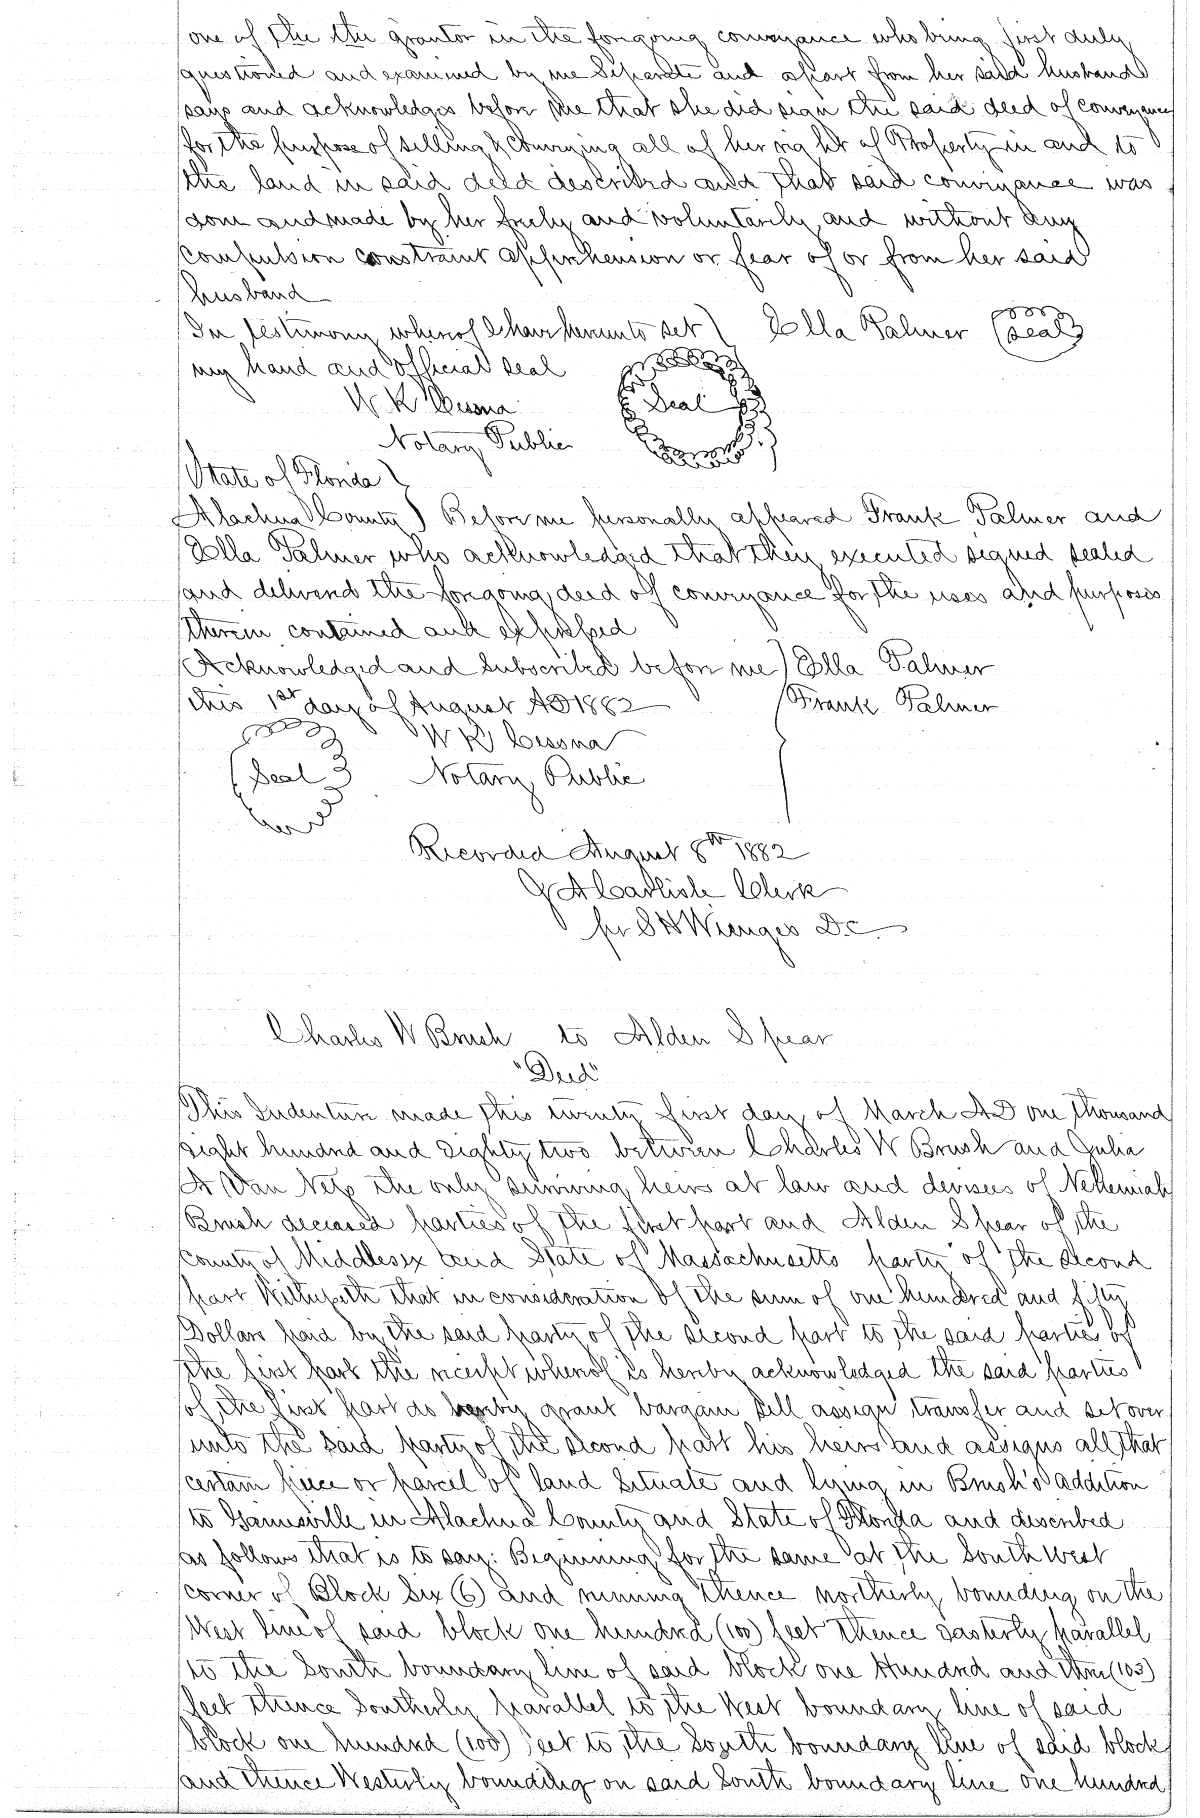 one of the the grantor in the foregoing conveyance who being first duly
questioned and examined by me Separate and apart from her said husband
says and acknowledges before me that she did sign the said deed of conveyance
for the purpose of selling & conveying all of her right of Property in and to
the land in said deed described and that said conveyance was
done and made by her freely and voluntarily and without any
compulsion constraint apprehension or fear of or from her said
husband
In testimony whereof I have hereunto set ) Ella Palmer (Seal)
my hand and official seal
W K Cessna Seal
Notary Public
State of Florida )
Alachua County ) Before me personally appeared Frank Palmer and
Ella Palmer who acknowledged that they executed signed sealed
and delivered the foregoing deed of conveyance for the uses and purposes
therein contained and expressed
Acknowledged and Subscribed before me ) Ella Palmer
this 1st day of August AD 1882 Frank Palmer
W K Cessna
Seal Notary Public
Recorded August 8th 1882
J A Carlisle Clerk
pr S H Wienges D.C.
Charles W Brush to Alden Spear
"Deed"
This Indenture made this twenty first day of March AD one thousand
eight hundred and Eighty two between Charles W Brush and Julia
A Van Ness the only surviving heirs at law and devisees of Nehemiah
Brush deceased parties of the first part and Alden Spear of the
County of Middlesex and State of Massachusetts party of the second
part Witnesseth that in consideration of the sum of one hundred and fifty
Dollars paid by the said party of the second part to the said parties of
the first part the receipt whereof is hereby acknowledged the said parties
of the first part do hereby grant bargain sell assign transfer and set over
unto the said party of the second part his heirs and assigns all that
certain piece or parcel of land Situate and lying in Brush's addition
to Gainesville in Alachua County and State of Florida and described
as follows that is to say: Beginning for the same at the South West
corner of Block Six (6) and running thence northerly bounding on the
West line of said block one hundred (100) feet thence Easterly parallel
to the South boundary line of said block one Hundred and three (103)
feet thence Southerly parallel to the West boundary line of said
block one hundred (100) feet to the South boundary line of said block
and thence Westerly bounding on said South boundary line one hundred